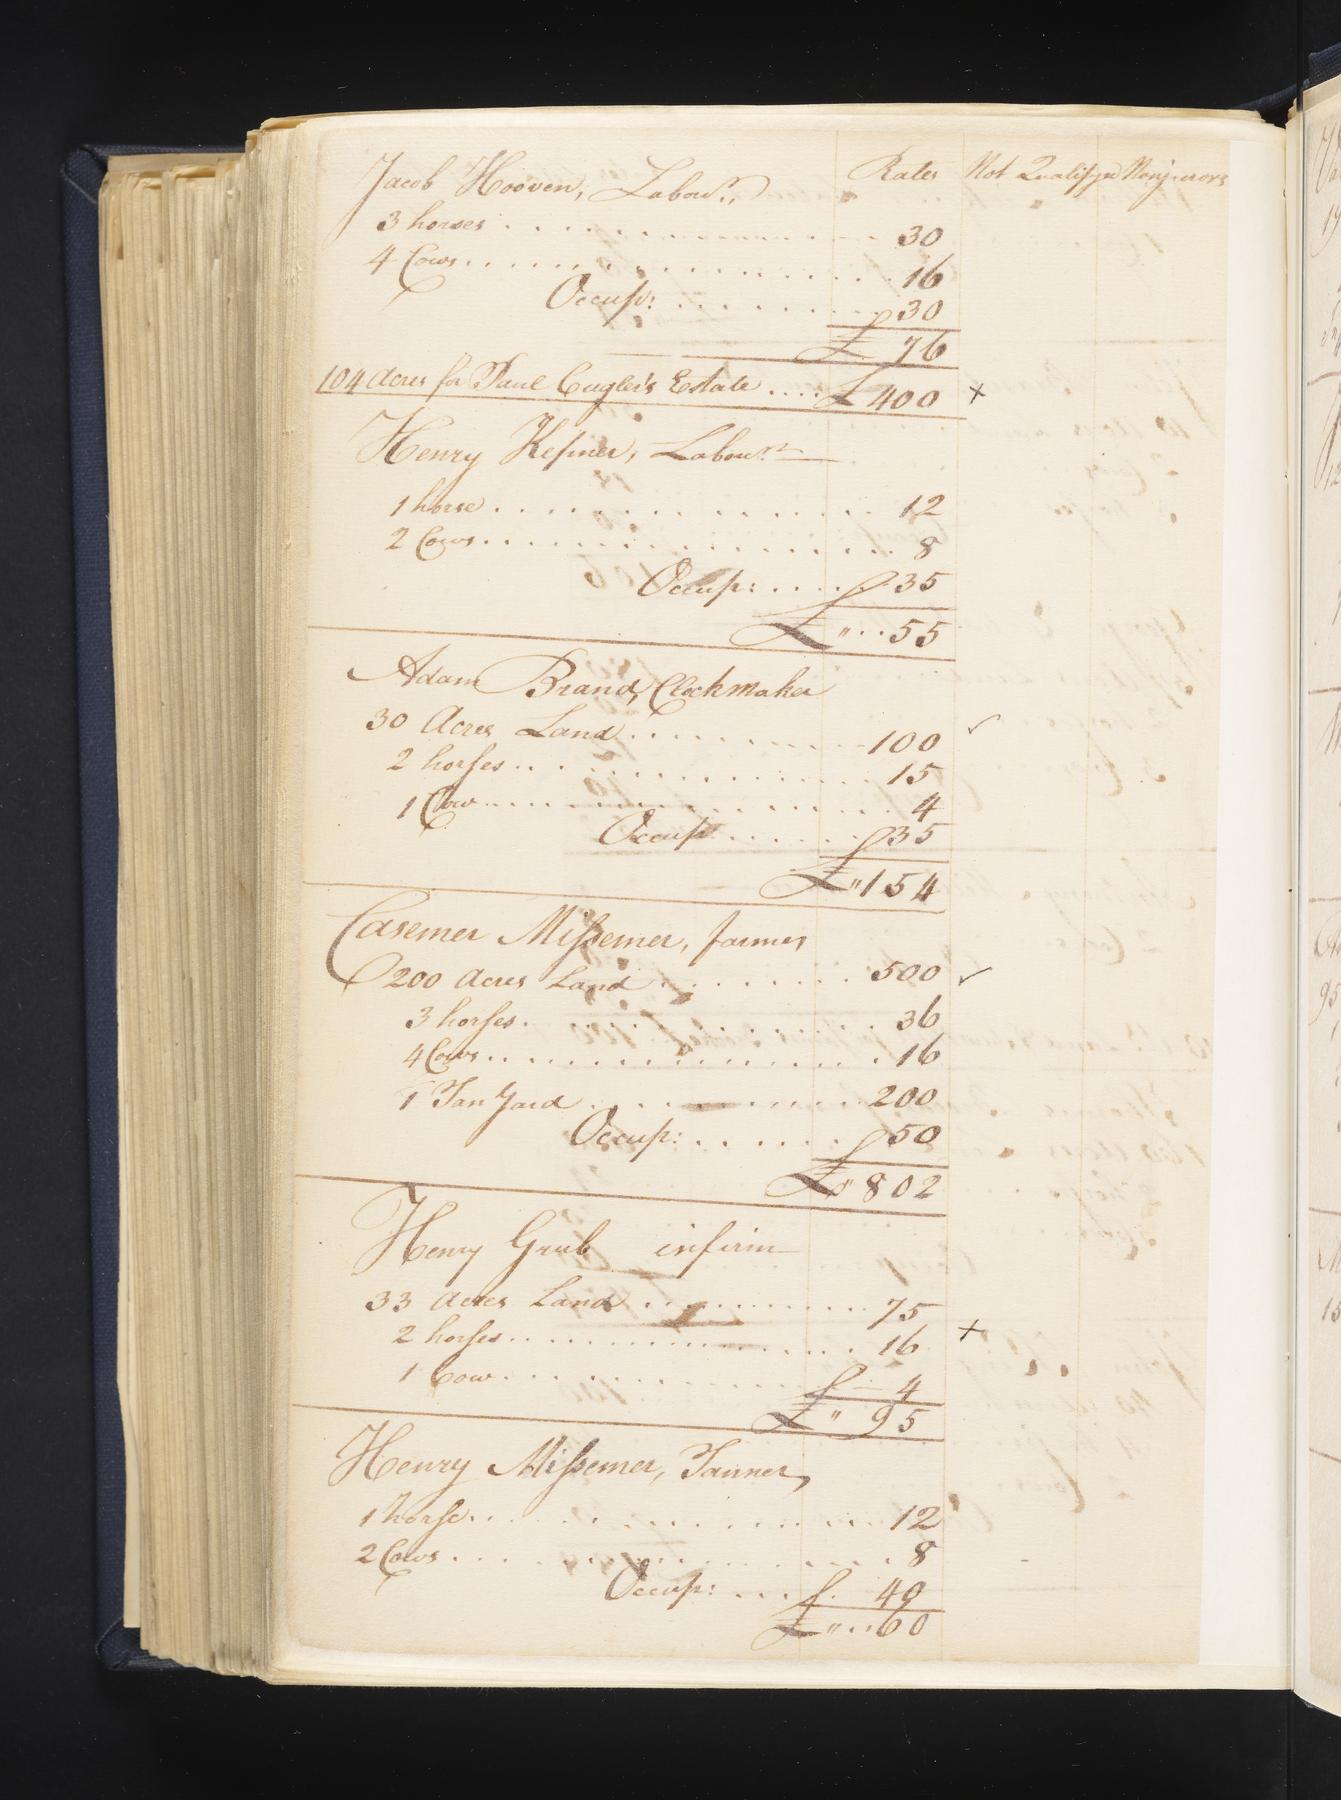 Rates Not Qualifyd Nonjurors
Jacob Hooven, Labour.,
3 horses . . . . . . . . . . . 30
4 Cows . . . . . . . . . . . 16
Occup: . . . . . . . 30
£ 76
104 Acres for Paul Cugler's Estate . . . . £ 400 ×
Henry Kepner, Labour.
1 horse . . . . . . . . . . . 12
2 Cows . . . . . . . . . . . 8
Occup: . . . . 35
£ " . . 55
Adam Brand, Clockmaker
30 Acres Land . . . . . . . . . 100 ✓
2 horses . . . . . . . . . . . 15
1 Cow . . . . . . . . . . . 4
Occup . . . . . . 35
£ " 154
Casemer Missemer, farmer
200 Acres Land . . . . . . . . 500 ✓
3 horses . . . . . . . . . . . 36
4 Cows . . . . . . . . . . . 16
1 Tan Yard . . . . . . . . . 200
Occup: . . . . . . 50
£ " 802
Henry Grub infirm
33 Acres Land . . . . . . . . . 75
2 horses . . . . . . . . . . . 16 ×
1 Cow . . . . . . . . . . . 4
£ " 95
Henry Missemer, Tanner,
1 horse . . . . . . . . . . . 12
2 Cows . . . . . . . . . . . 8
Occup: . . . 40
£ " . . 60